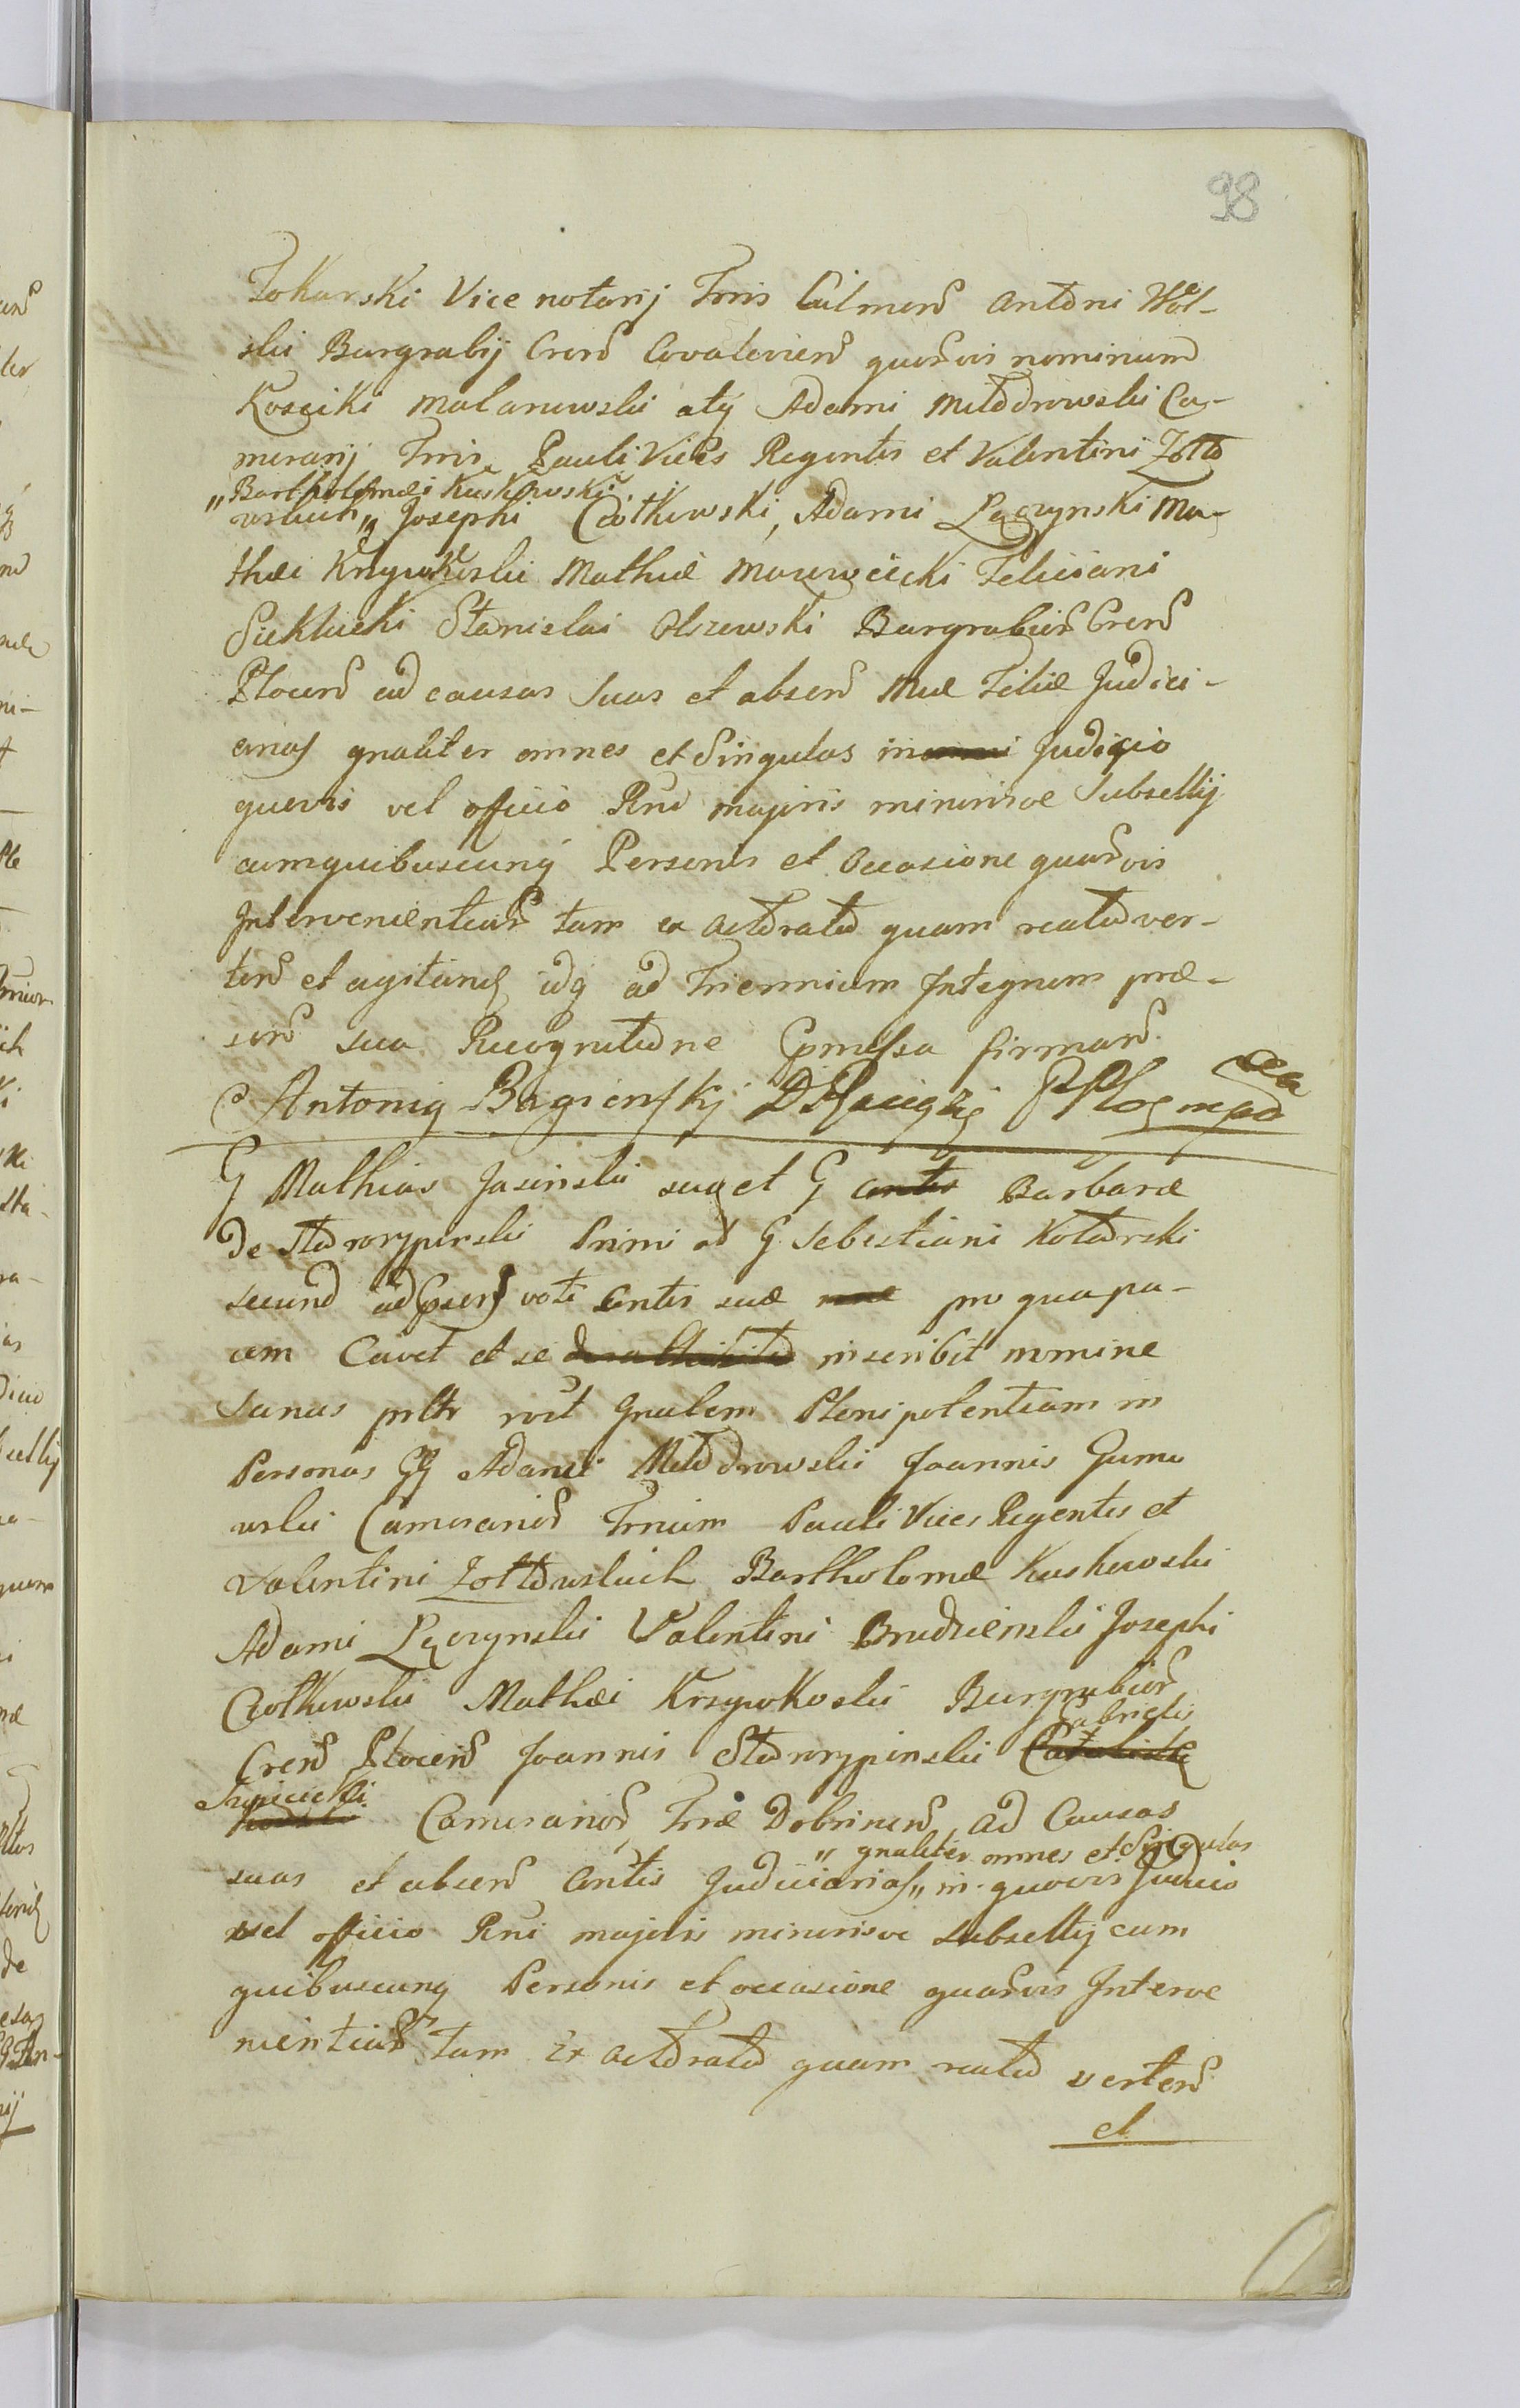 98
Tokarski Vice notarij Trris Culmens Antoni Wol-
ski Burgrabij Crens Covaleviens quorvis nominum
Kosciki Malanowski atq Adami Miłodrowski Ca-
merarij Trris Pauli Vices Regentis et Valentini Żoło
"Bartholomæi Kuskowski
wskich" Josephi Ciołkowski, Adami Łączynski Ma-
thæi Krzywkoski Mathiæ Mazowiecki Feliciani
Sieklucki Stanislai Olszewski Burgrabior Crens
Plocens ad causas suas et absens suæ Filiæ Judici-
arias gnaliter omnes et Singulas in Judicio
quovis vel officio Rni majoris minorisve Subsellij
cumquibuscunq Personis et Occasione quarvis
Intervenientiar tam ex actoratu quam reatu ver-
ten et agitand idq ad Triennium Integrum præ-
sen sua Recognitione Cpmissa firman
Antonig Bagienski
G Mathias Jasinski suo et G Barbaræ
de Staroryperski Primi ad G Sebestiani Kotarski
secund ad Cpsen voti Cntis suæ pro qua pa-
cem Cavet et se inscribit nomine
Sanus prltr rocit Gnalem Plenipotentiam in
Personas GG Adami Miłodrowski Joannis Gumo
wski Camerarior Trrium Pauli Vices Regentis et
Valentini Żołtowskich Bartholomæ Kuskowski
Adami Łączynski Valentini Brudzienski Josephi
Ciołkowski Mathæi Krzywkoski Burgrabior
Gabrielis
Crens Plocens Joannis Starorypinski
Szpicicki
Camerarior Trræ Dobrinens ad Causas
" gnaliter omnes et Singulas
suas et absens Cntis Judiciarias" in quovis Judicio
vel officio Rni majoris minorisve Subsellij cum
quibuscunq Personis et occasione quarvis Interve
nientiar tam Ex actoratu quam reatu verten
et